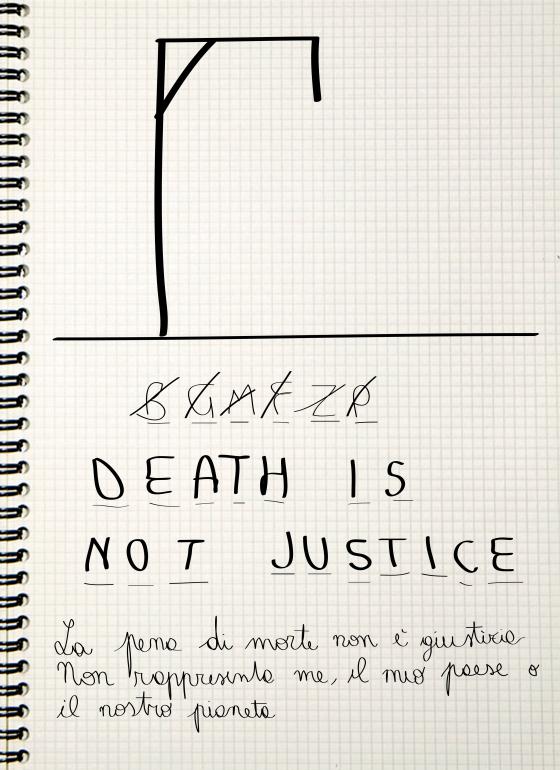 B G M F Z P
DEATH IS
NOT JUSTICE
La pena di morte non è giustizia
Non rappresenta me, il mio paese o
il nostro pianeta